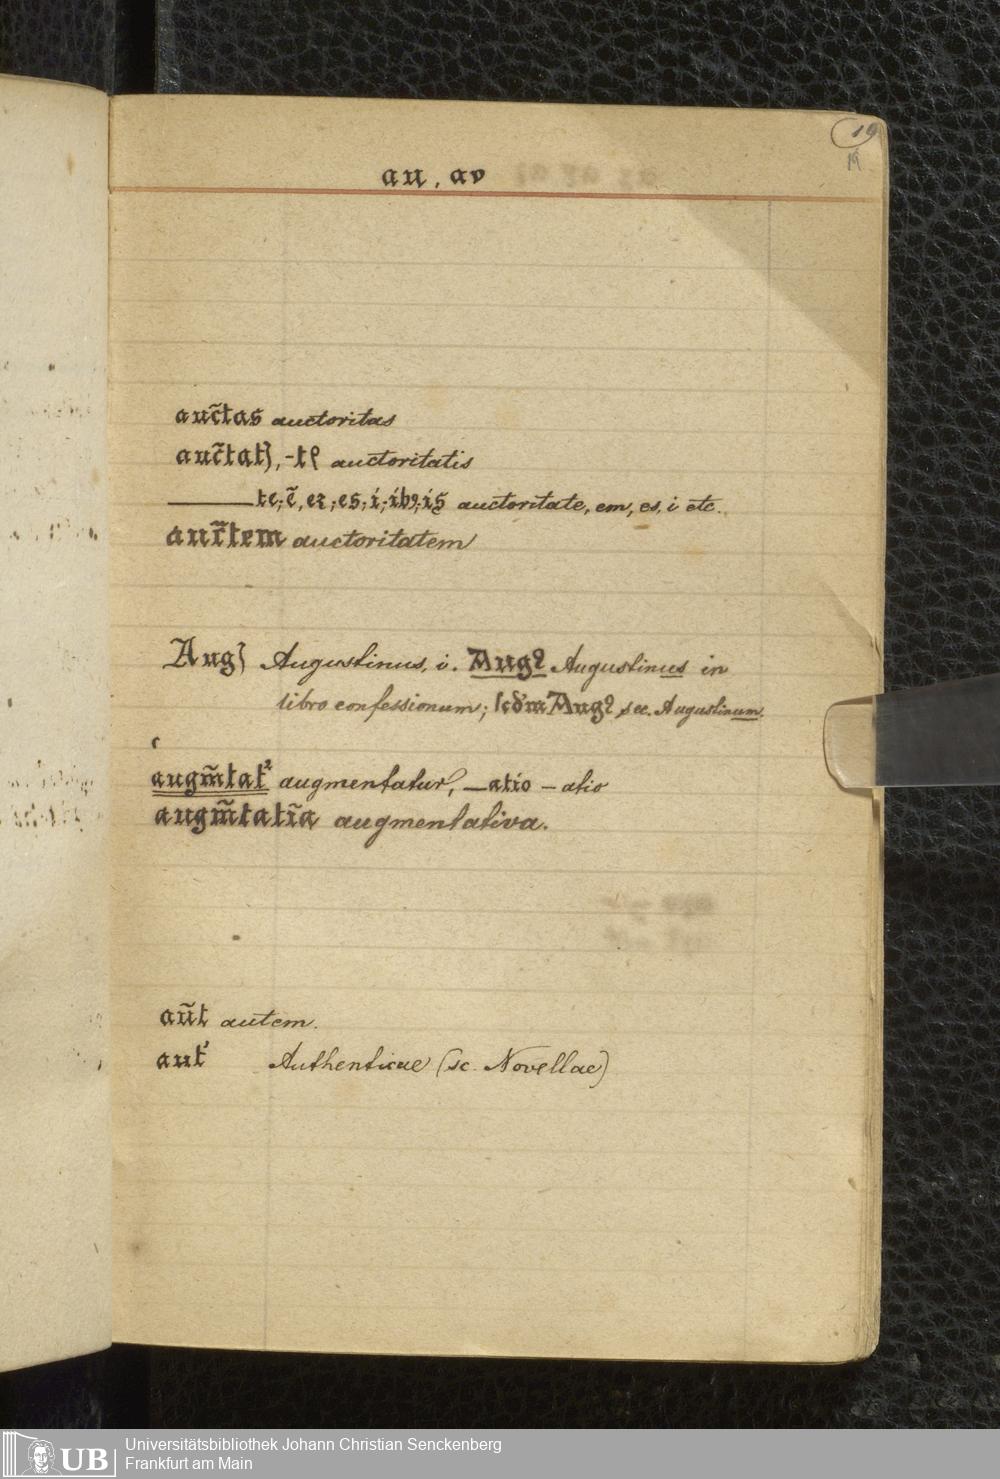 19
19
au, av
auc̃tas auctoritas
auc̃tatꝭ, -tꝭ auctoritatis
te; ẽ, eꝛ; es; i; ibꝫ; is auctoritate, em, es, i etc.
auc̃tem auctoritatem
Augꝭ Augustinus, i. Augꝰ Augustinus in
libro confessionum; Augꝰ sec. Augustinum.
augm̃tatᷣ augmentatur, —atio – atio
augm̃tatĩa augmentativa.
aũt autem.
aut' Authenticae (sc. Novellae)
UB
Universitätsbibliothek Johann Christian Senckenberg
Frankfurt am Main